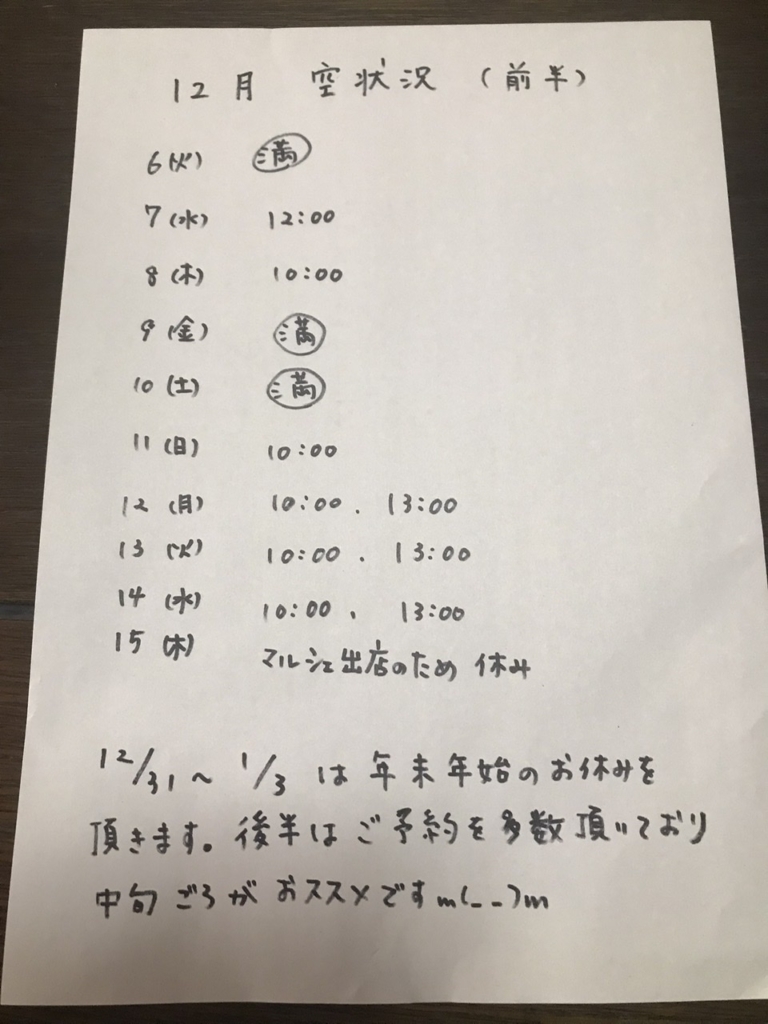 12月 空状況 (前半)
6(火) 満
7(水) 12:00
8(木) 10:00
9(金) 満
10(土) 満
11(日) 10:00
12(月) 10:00. 13:00
13(火) 10:00. 13:00
14(水) 10:00. 13:00
15(木) マルシェ出店のため 休み
12/31~1/3は年末年始のお休みを
頂きます。後半はご予約を多数頂いており
中旬ごろがおススメですm(_ _)m